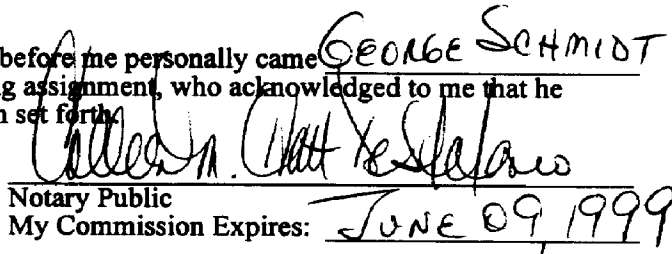 before me personally came GEORGE SCHMIDT
g assignment, who acknowledged to me that he
n set forth.
Colleen M.
Notary Public
My Commission Expires: JUNE 09, 1999